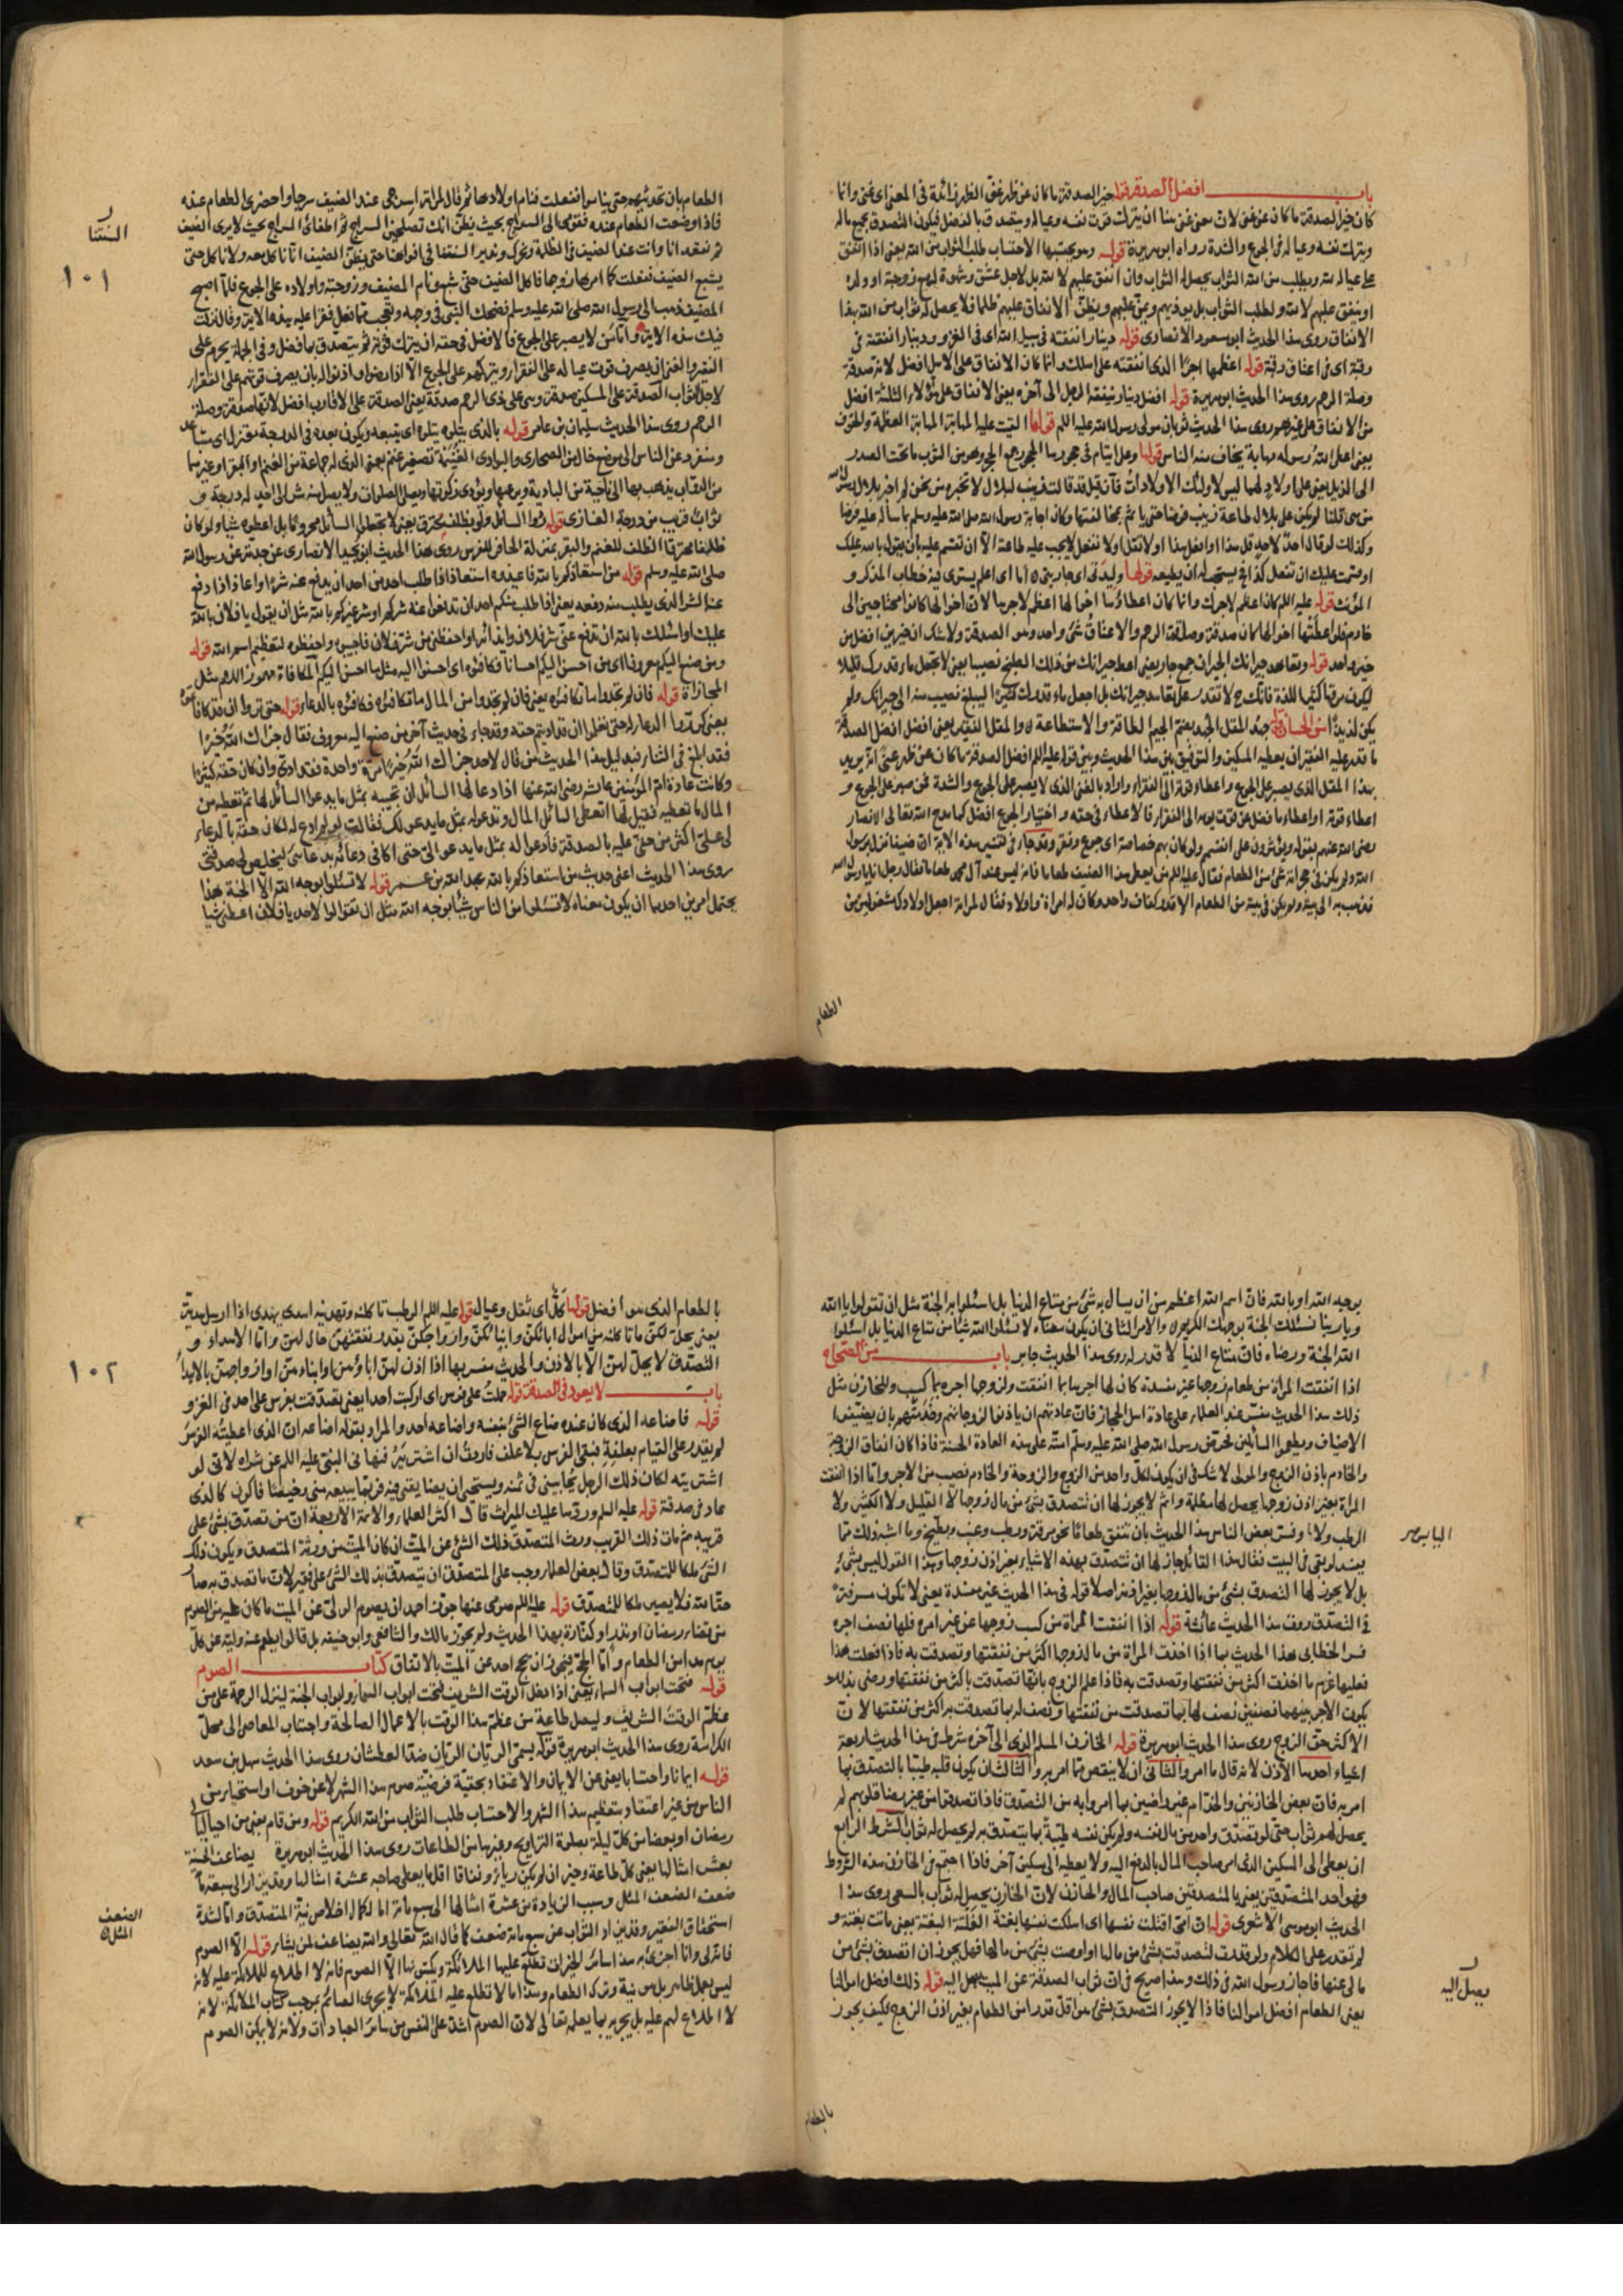 باب افضل الصدقة قوله خير الصدقة ما كان عن ظهر غنى الظهر زائدة في المعنى اى غنى وانما
كان خير الصدقة ما كان عن غنى لان معنى غنى هنا ان يترك قوت نفسه وعياله ويتصدق بالفضل فيكون التصدق بجميع ماله
ويترك نفسه وعياله في الجوع والشدة رواه ابو هريرة قوله وهو يحتسبها الاحتساب طلب الثواب من الله يعنى اذا انفق
على عياله لله ويطلب من الله الثواب يحصل له الثواب وان انفق عليهم لا لله بل لاجل عشق وشهوة لهم زوجة او ولدا
او ينفق عليهم لا لله ولطلب الثواب بل يوذيهم ويمن عليهم ويظن الانفاق عليهم ظلما فلا يحصل له ثواب من الله بهذا
الانفاق روى هذا الحديث ابو مسعود الانصارى قوله دينار انفقته في سبيل الله اى في الغزو ودينار انفقته في
رقبة اى في اعتاق رقبة قوله اعظمها اجرا الذى انفقته على اهلك وانما كان الانفاق على الاهل افضل لانه صدقة
وصلة الرحم روى هذا الحديث ابو هريرة قوله افضل دينار ينفقه الرجل الى آخره يعنى الانفاق على هؤلاء الثلثة افضل
من الانفاق على غيرهم روى هذا الحديث ثوبان مولى رسول الله عليه اللم قولها القيت عليه المهابة المهابة العظمة والخوف
يعنى اعطى الله رسوله مهابة يخاف منه الناس قولها وعلى ايتام في حجورها الحجور جمع الحجر وهو من الثوب ما تحت الصدر
الى الذيل يعنى على اولاد لهما ليس لاولئك الاولاد أب
من هى قلنا لم يكن على بلال طاعة زينب فرضا حتى يأثم بمخالفتها وكان اجابة رسول الله صلى الله عليه وسلم بما سأله عليه فرضا
وكذلك لو قال احد لاحد قل هذا او افعل هذا او لا تقل او لا تفعل لا يجب عليه طاعة الا ان تقسم عليه بان يقول بالله عليك
او قسمت عليك ان تفعل كذا فح يستحب له ان يطيعه قولها وليدتى اى جاريتى اما اى اعلم يستوى فيه خطاب المذكر و
المؤنث قوله عليه اللم كان اعظم لاجرك وانما كان اعطاؤها اخوالها اعظم لاجرها لان اخوالها كانوا محتاجين الى
خادم فلو اعطتها اخوالها كان صدقة وصلة الرحم والاعتاق شئ واحد وهو الصدقة ولا شك ان خيرين افضل من
خير واحد قوله وتعاهد جيرانك الجيران جمع جار يعنى اعط جيرانك من ذلك الطبيخ نصيبا يعنى لا تجعل ماء قدرك قليلا
ليكون مرقا كثير اللذة فانك ح لا تقدر على تعاهد جيرانك بل اجعل ماء قدرك كثيرا ليبلغ نصيب منه الى جيرانك ولم
يكن لذيذا من الحسان قوله جهد المقل الجهد بضم الجيم الطاقة والاستطاعة والمقل الفقير يعنى افضل الصدقة
ما قدر عليه الفقير ان يعطيه المسكين والتوفيق بين هذا الحديث وبين قوله عليه اللم افضل الصدقة ما كان عن ظهر غنى انه يريد
بهذا المقل الذى يصبر على الجوع واعطاء قوته الى الفقراء واراد بالغنى الذى لا يصبر على الجوع والشدة فمن صبر على الجوع و
اعطاء قوته او اعطاء ما فضل عن قوت يومه الى الفقراء فالاعطاء في حقه واختيار الجوع افضل كما مدح الله تعالى الانصار
رضى الله عنهم بقوله ويؤثرون على انفسهم ولو كان بهم خصاصة اى جوع وفقر وقد جاء في تفسير هذه الاية ان ضيفا نزل برسول
الله ولم يكن في حجراته شئ من الطعام فقال عليه اللم من يعطى هذا الضيف طعاما فانه ليس عند آل محمد طعام فقال رجل انا يا رسول الله
فذهب به الى بيته ولم يكن في بيته من الطعام الا قدر كفاف واحد وكان له امرأة واولاد فقال لمرأته اجعلى اولادك مشغولين من
الطعام
الطعام بان تحدثيهم حتى يناموا ففعلت فنام اولادها ثم قال لمرأته اسرجى عند الضيف سرجا واحضرى الطعام عنده
فاذا وضعت الطعام عنده فقومى الى السراج بحيث يظن انك تصلحين السراج ثم اطفائى السراج بحيث لا يرى الضيف
ثم نقعد انا وانت عند الضيف في الظلمة ونحرك وندير السنتنا في افواهنا حتى يظن الضيف انا ناكل معه ولا ناكل حتى
يشبع الضيف ففعلت كما امرها زوجها فاكل الضيف حتى شبع ونام المضيف وزوجته واولاده على الجوع فلما اصبح
المضيف ذهب الى رسول الله صلى الله عليه وسلم فضحك النبى في وجهه وتعجب مما فعل فقرا عليه هذه الاية وقال نزلت
فيك هذه الاية واما من لا يصبر على الجوع فالافضل في حقه ان يترك قوته ثم يتصدق بما فضل وفي الجملة يحرم على
الفقير والغنى ان يصرف قوت عياله على الفقراء ويتركهم على الجوع الا اذا رضوا واذنوا له بان يصرف قوتهم على الفقراء
لاجل ثواب الصدقة على المسكين صدقة وهى على ذى الرحم صدقة يعنى الصدقة على الاقارب افضل لانها صدقة وصلة
الرحم روى هذا الحديث سليمان بن عامر قوله بالذى يتلوه يتلوه اى يتبعه ويكون بعده في الدرجة معتزل اى متباعد
ومنفرد عن الناس الى موضع خال من الصحارى والبوادى الغنيمة تصغير غنم يعنى الذى له جماعة من الغنم او البقر او غيرهما
من الدواب يذهب بها الى ناحية من البادية ويرعيها ويؤدى زكوتها ويصلى الصلوات ولا يصل منه شر الى احد له درجة و
ثواب قريب من درجة الغازى قوله ردوا السائل ولو بظلف محرق يعنى لا تجعلوا السائل محروما بل اعطوه شيا ولو كان
ظلفا محترقا الظلف للغنم والبقر بمنزلة الحافر للفرس روى هذا الحديث ابن بجيد الانصارى عن جدته عن رسول الله
صلى الله عليه وسلم قوله من استعاذكم بالله فاعيذوه استعاذ اذا طلب احد من احد ان يدفع عنه شرا واعاذ اذا دفع
عنه الشر الذى يطلب منه دفعه يعنى اذا طلب منكم احد ان تدفعوا عنه شركم او شر غيركم بالله مثل ان يقول يا فلان بالله
عليك او اسئلك بالله ان تدفع عنى شر فلان وايذائه او احفظنى من شر فلان فاجيبوه واحفظوه لتعظيم اسم الله قوله
ومن صنع اليكم معروفا اى من احسن اليكم احسانا فكافئوه اى احسنوا اليه مثل ما احسن اليكم المكافاة مهموز اللام مثل
المجازاة قوله فان لم تجدوا ما تكافئوه يعنى فان لم تجدوا من المال ما تكافئوه فكافئوه بالدعاء قوله حتى تروا ان قد كافأتموه
يعنى كرروا الدعاء له حتى تعلموا ان قد اديتم حقه وقد جاء في حديث آخر من صنع اليه معروف فقال جزاك الله خيرا
فقد ابلغ في الثناء فبدليل هذا الحديث من قال لاحد جزاك الله خيرا مرة واحدة فقد ادى وان كان حقه كثيرا
وكانت عادة ام المؤمنين عائشة رضى الله عنها اذا دعا لها السائل ان تجيبه بمثل ما يدعو السائل لها ثم تعطيه من
المال ما تعطيه فقيل لها اتعطى السائل المال وتدعو له بمثل ما يدعو لك فقالت لو لم ادع له لكان حقه بالدعاء
لى على اكثر من حقى عليه بالصدقة فادعو له بمثل ما يدعو الى حتى اكافى دعائه بدعائى ليخلص لى صدقتى
روى هذا الحديث اعنى حديث من استعاذكم بالله عبد الله بن عمر قوله لا تسئلوا بوجه الله الا الجنة هذا
يحتمل امرين احدهما ان يكون معناه لا تسئلوا من الناس شيأ بوجه الله مثل ان تقولوا لاحد يا فلان اعطنى شيا
السنتنا
١٠١
بوجه الله او بالله فان اسم الله اعظم من ان يسال به شئ من متاع الدنيا بل اسئلوا به الجنة مثل ان تقولوا يا الله
ويا ربنا نسئلك الجنة بوجهك الكريم والامر الثانى ان يكون معناه لا تسئلوا الله شيا من متاع الدنيا بل اسئلوا
الله الجنة ورضاه فان متاع الدنيا لا قدر له روى هذا الحديث جابر باب من الصحاح
اذا انفقت المرأة من طعام زوجها غير مفسدة كان لها اجرها بما انفقت ولزوجها اجره بما كسب وللخازن مثل
ذلك هذا الحديث مفسر عند العلماء على عادة اهل الحجاز فان عادتهم ان ياذنوا لزوجاتهم وخدمهم بان يضيفوا
الاضياف ويطعموا السائلين فحرض رسول الله صلى الله عليه وسلم امته على هذه العادة الحسنة فاذا كان انفاق الزوجة
والخادم باذن الزوج والمولى لا شك في ان يكون لكل واحد من الزوج والزوجة والخادم نصيب من الاجر واما اذا انفقت
المرأة بغير اذن زوجها يحصل لها مظلمة واثم لا يجوز لها ان تتصدق بشئ من مال زوجها لا القليل ولا الكثير ولا
الرطب ولا وفسر بعض الناس هذا الحديث بان تنفق طعاما نحو مرقة ورطب وعنب وبطيخ وما اشبه ذلك مما
يفسد لو بقى في البيت فقال هذا القائل جاز لها ان تتصدق بهذه الاشياء بغير اذن زوجها وهذا القول ليس بشئ
بل لا يجوز لها التصدق بشئ من مال زوجها بغير اذنه اصلا قوله في هذا الحديث غير مفسدة يعنى لا تكون مسرفة
في التصدق روت هذا الحديث عائشة قوله اذا انفقت المرأة من كسب زوجها عن غير امره فلها نصف اجره
فسر الخطابى هذا الحديث بما اذا اخذت المرأة من مال زوجها اكثر من نفقتها وتصدقت به فاذا فعلت هذا
فعليها غرم ما اخذت اكثر من نفقتها وتصدقت به فاذا علم الزوج بانها تصدقت باكثر من نفقتها ورضى بذلك
يكون الاجر بينهما نصفين نصف لها بما تصدقت من نفقتها ونصف له بما تصدقت به اكثر من نفقتها لان
الاكثر حق الزوج روى هذا الحديث ابو هريرة قوله الخازن المسلم الذى الى آخره شرط في هذا الحديث اربعة
اشياء احدها الاذن لانه قال ما امر والثانى ان لا ينقص مما امر به والثالث ان يكون قلبه طيبا بالتصدق بما
امر به فان بعض الخازنين والخدام غير راضين بما امروا به من التصدق فاذا تصدقوا من غير رضا قلوبهم لم
يحصل لهم ثواب حتى لو تصدق واحد من مال نفسه ولم يكن نفسه طيبة بما يتصدق به لم يحصل له ثواب الشرط الرابع
ان يعطى الى المسكين الذى امر صاحب المال بالدفع اليه ولا يعطيه الى مسكين آخر فاذا اجتمع في الخازن هذه الشروط
فهو احد المتصدقين يعنى بالمتصدقين صاحب المال والخازن لان الخازن يحصل له ثواب بالسعى روى هذا
الحديث ابو موسى الاشعرى قوله ان امى افتلتت نفسها اى اهلكت نفسها بغتة الفلتة البغتة يعنى ماتت بغتة و
لم تقدر على الكلام ولو قدرت لتصدقت بشئ من مالها او اوصت بشئ من مالها فهل يجوز ان اتصدق بشئ من
مالى عنها فاجاز رسول الله في ذلك وهذا صريح في ان ثواب الصدقة عن الميت يصل اليه قوله ذلك افضل اموالنا
يعنى الطعام افضل اموالنا فاذا لا يجوز التصدق بشئ هو اقل قدرا من الطعام بغير اذن الزوج فكيف يجوز
بالطعام
اليابس صر
يصل اليه
بالطعام الذى هو افضل قولها كل اى ثقل وعيال قوله عليه اللم الرطب تاكلنه وتهدينه اهدى يهدى اذا ارسل هدية
يعنى يحل لكن ما تاكلنه من اموال ابائكن وابنائكن وازواجكن بقدر نفقتهن حال لهن واما الاهداء و
التصدق لا يحل لهن الا بالاذن والحديث مفسر بهما اذا اذن لهن اباؤهن او ابناءهن او ازواجهن بالاهداء
باب لا يعود في الصدقة قوله حملت على فرس اى اركبت احدا يعنى تصدقت بفرس على احد في الغزو
قوله فاضاعه الذى كان عنده ضاع الشئ بنفسه واضاعه احد والمراد بقوله اضاعه ان الذى اعطيته الفرس
لم يقدر على القيام بعلفه فبقى الفرس بلا علف فاردت ان اشتريه منها فنهانى النبى عليه اللم عن شراه لانى لو
اشتريته لكان ذلك الرجل يحابينى في ثمنه ويستحيى ان يضايقنى فيه فربما يبيعه منى رخيصا فاكون كالذى
عاد في صدقته قوله عليه السلم وردها عليك الميراث قال اكثر العلماء والائمة الاربعة ان من تصدق بشئ على
قريبه ثم مات ذلك القريب ورث المتصدق ذلك الشئ عن الميت ان كان الميت من ورثة المتصدق ويكون ذلك
الشئ ملكا للمتصدق وقال بعض العلماء وجب على المتصدق ان يتصدق بذلك الشئ على فقير لان ما تصدق به صار
حقا لله فلا يصير ملكا للمتصدق قوله عليه اللم صومى عنها جوز احمد ان يصوم الولى عن الميت ما كان عليه من الصوم
من قضاء رمضان او نذر او كفارة بهذا الحديث ولم يجوز مالك والشافعى وابو حنيفه بل قالوا يطعم عنه وليه عن كل
يوم مدا من الطعام واما الحج فيجوز ان يحج احد عن الميت بالاتفاق كتاب الصوم
قوله فتحت ابواب السماء يعنى اذا دخل الوقت الشريف فتحت ابواب السماء وابواب الجنة لينزل الرحمة على من
عظم الوقت الشريف وليصل طاعة من عظم هذا الوقت بالاعمال الصالحة واجتناب المعاصى الى محل
الكرامة روى هذا الحديث ابو هريرة قوله يسمى الريان الريان ضد العطشان روى هذا الحديث سهل بن سعد
قوله ايمانا واحتسابا يعنى عن الايمان والاعتقاد بحقية فرضية صوم هذا الشهر لا عن خوف او استحياء من
الناس من غير اعتقاد بتعظيم هذا الشهر والاحتساب طلب الثواب من الله الكريم قوله ومن قام يعنى من احيا ليالى
رمضان او بعضا من كل ليلة بصلوة التراويح وغيرها من الطاعات روى هذا الحديث ابو هريرة يضاعف الحسنة
بعشر امثالها يعنى كل طاعة وخير ان لم يكن رياء ونفاقا اقل ما يعطى صاحبه عشرة امثالها وقد يزاد الى سبعمائة
ضعف الضعف المثل وسبب الزيادة من عشرة امثالها الى سبعمائة اما لكمال اخلاص نية المتصدق واما لشدة
استحقاق الفقير وقد يزاد الثواب عن سبعمائة ضعف كما قال الله تعالى والله يضاعف لمن يشاء قوله الا الصوم
فانه لى وانا اجزى به هذا سائر الخيرات تطلع عليها الملائكة ويكتبونها الا الصوم فانه لا اطلاع للملائكة عليه لانه
ليس بعمل ظاهر بل هو نية وترك الطعام وهذا ما لا تطلع عليه الملائكة لا يجرى الصائم بموجب كتاب الملائكة لانه
لا اطلاع لهم عليه بل يجزيه بما يعلمه تعالى لان الصوم اشد على النفس من سائر العبادات ولانه لا يمكن الصوم
١٠٢
الضعف
المثل